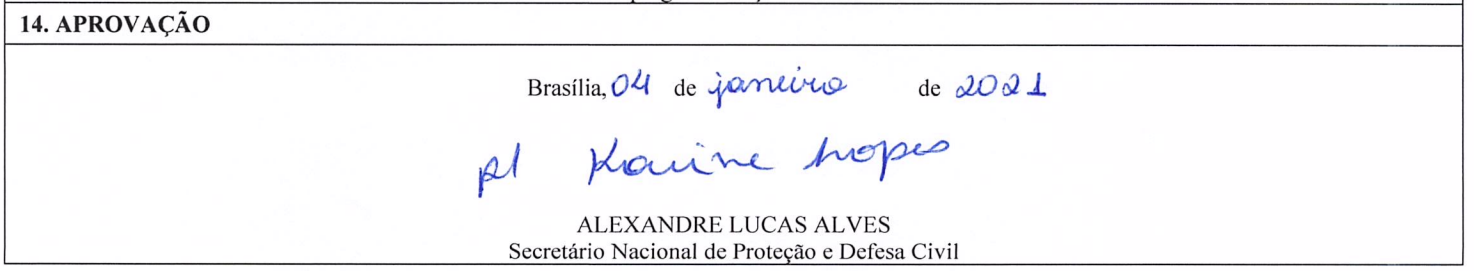 14. APROVAÇÃO
Brasília, 04 de janeiro de 2021
p/ Karine Lopes
ALEXANDRE LUCAS ALVES
Secretário Nacional de Proteção e Defesa Civil